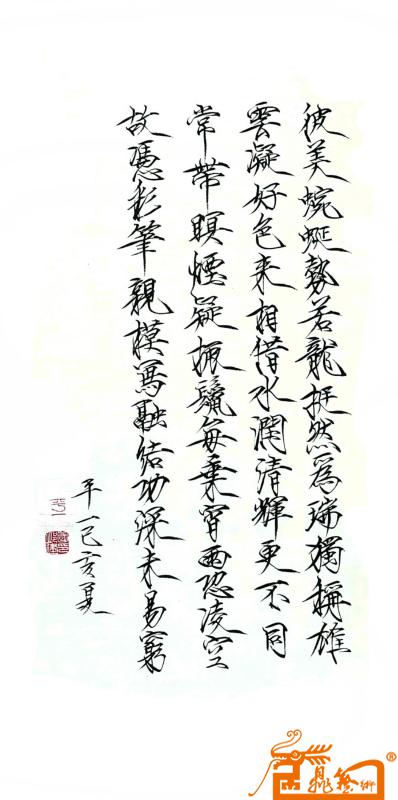 彼美蜿蜒勢若龍挺然爲瑞獨稱雄
雲凝好色来相借水潤清輝更不同
常帶瞑煙疑振鬣每乘宵雨恐凌空
故憑彩筆親模寫融結功深未易窮
平一己亥夏
平一
®